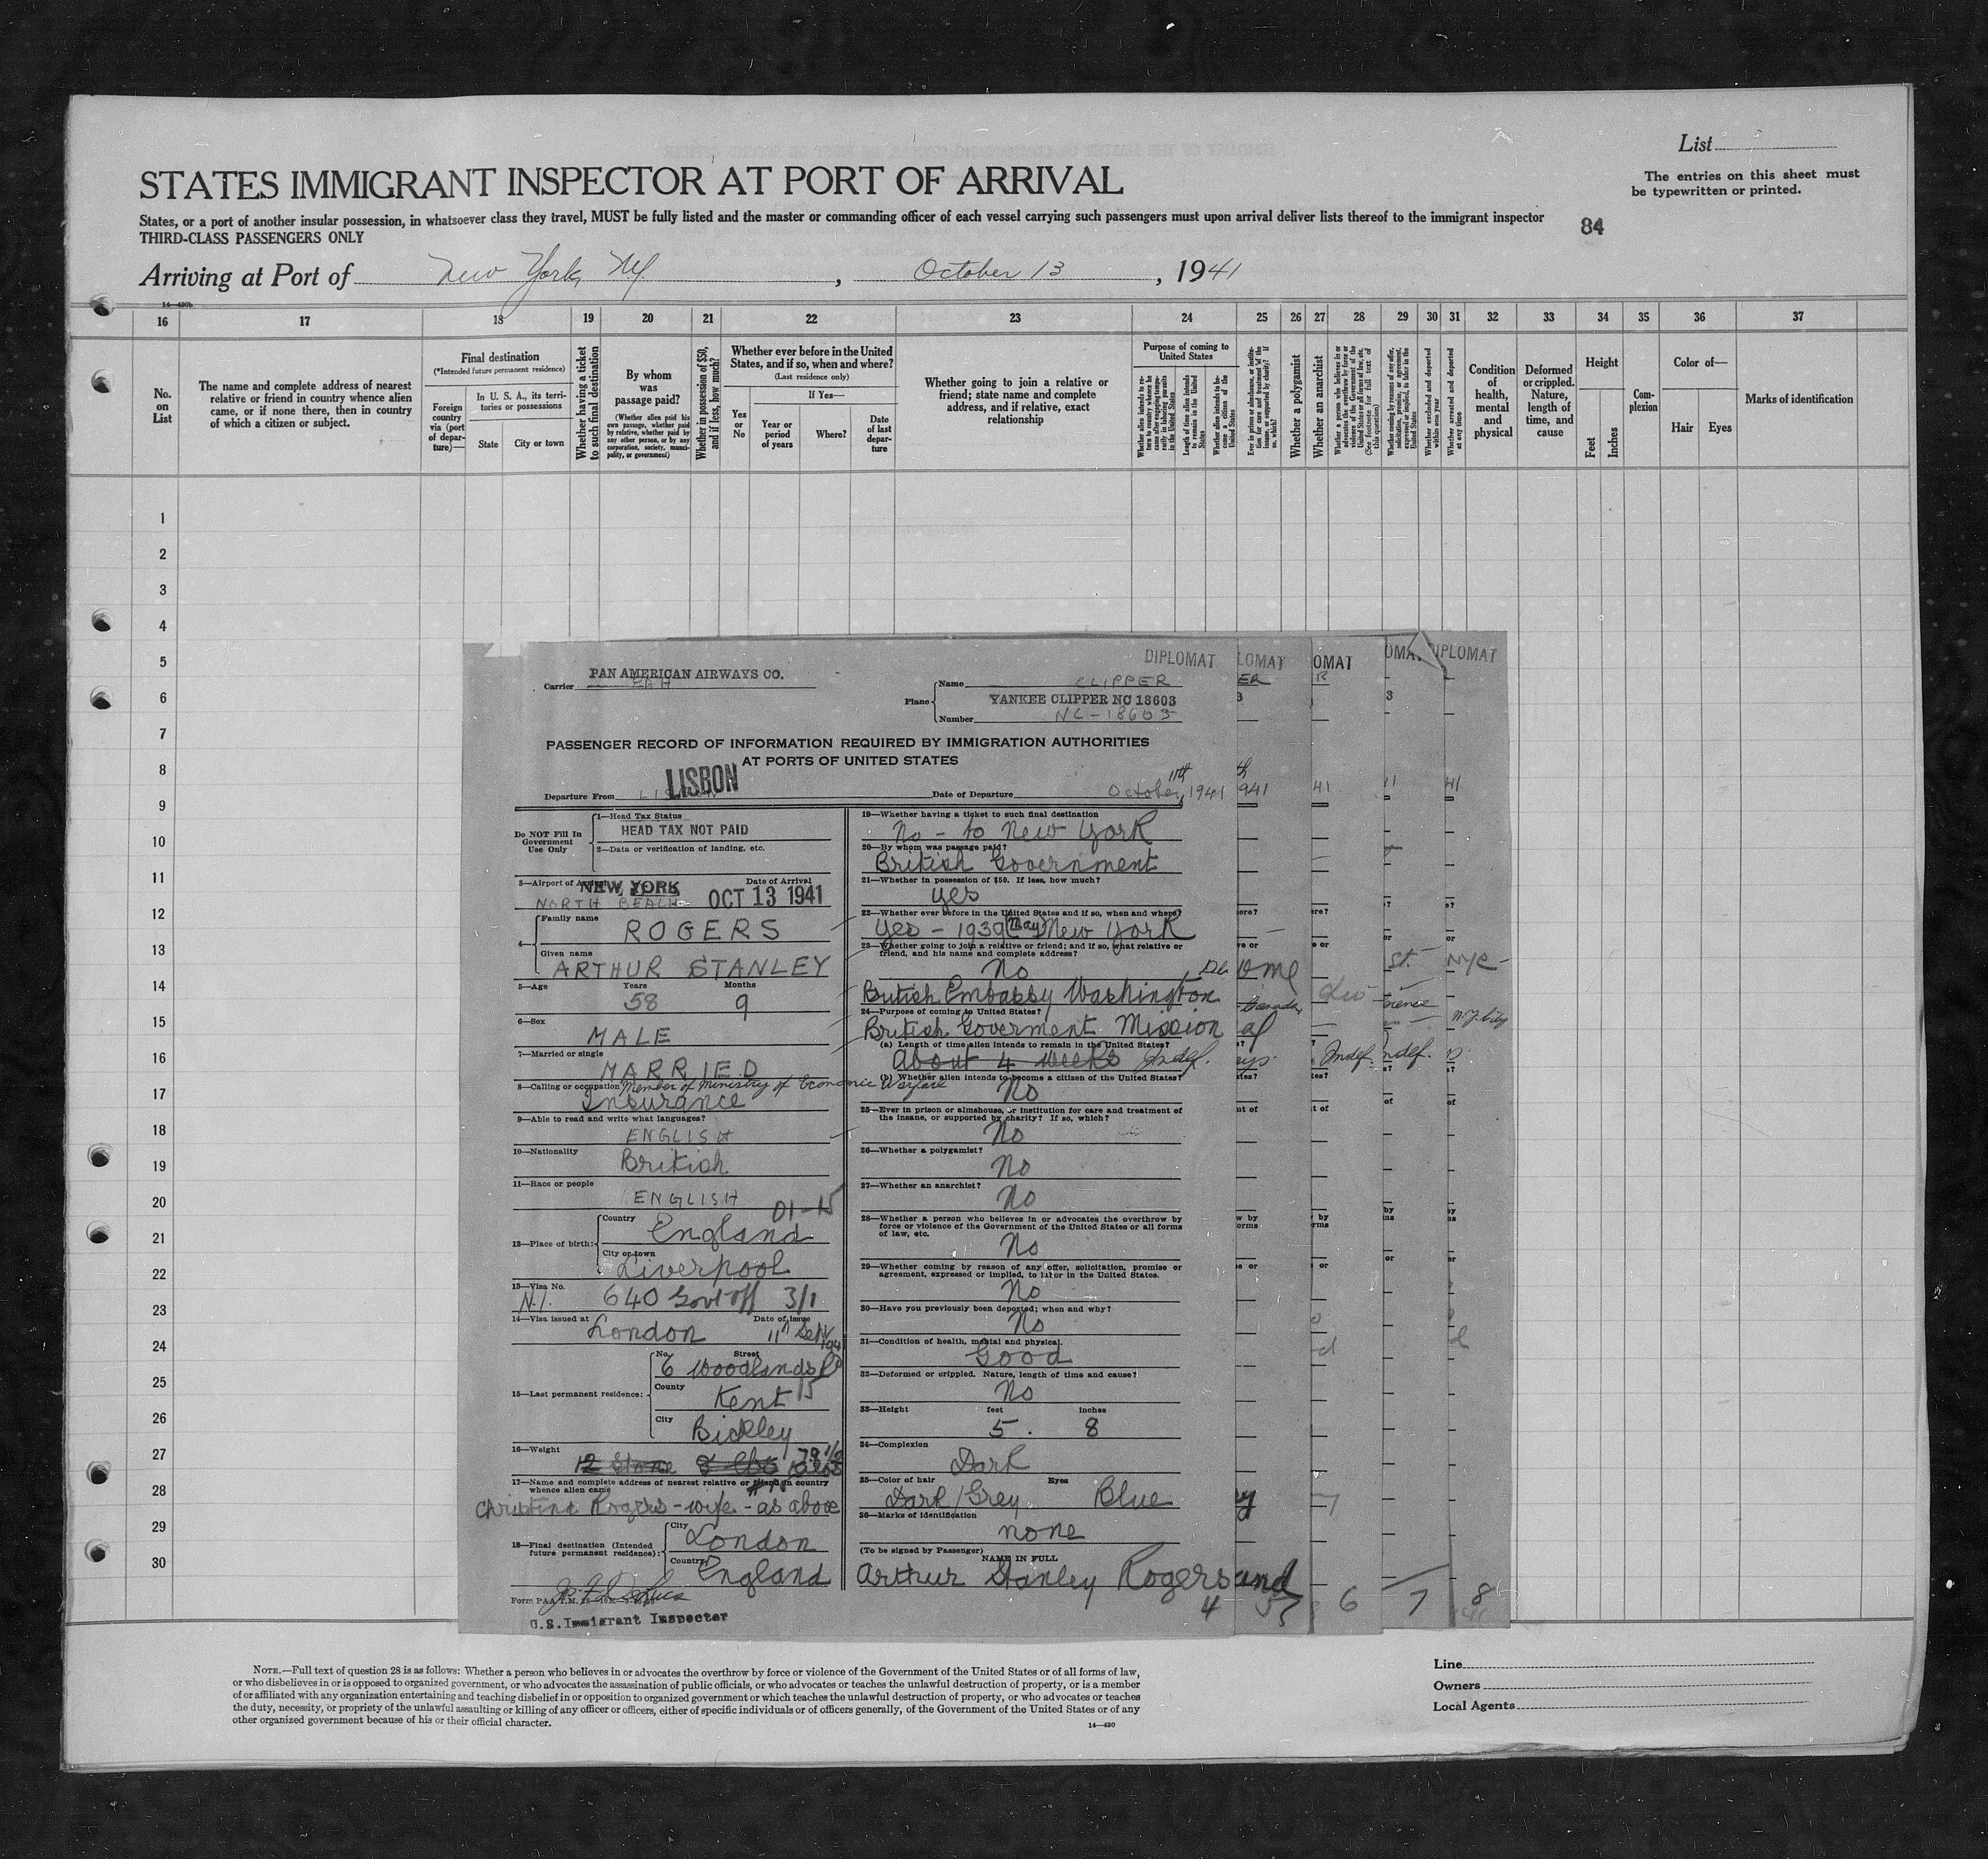 List
The entries on this sheet must
be typewritten or printed.
STATES IMMIGRANT INSPECTOR AT PORT OF ARRIVAL
States, or a port of another insular possession, in whatsoever class they travel, MUST be fully listed and the master or commanding officer of each vessel carrying such passengers must upon arrival deliver lists thereof to the immigrant inspector
THIRD-CLASS PASSENGERS ONLY
84
Arriving at Port of New York, NY. , October 13 , 1941
14—430b
16 17 18 19 20 21 22 23 24 25 26 27 28 29 30 31 32 33 34 35 36 37
No. on List
The name and complete address of nearest
relative or friend in country whence alien
came, or if none there, then in country
of which a citizen or subject.
Final destination
(*Intended future permanent residence)
Foreign country via (port of departure)—
In U. S. A., its territories or possessions
State City or town
Whether having a ticket to such final destination
By whom was passage paid?
(Whether alien paid his own passage, whether paid by relative, whether paid by any other person, or by any corporation, society, municipality, or government)
Whether in possession of $50, and if less, how much?
Whether ever before in the United States, and if so, when and where?
(Last residence only)
Yes or No
If Yes—
Year or period of years
Where?
Date of last departure
Whether going to join a relative or
friend; state name and complete
address, and if relative, exact
relationship
Purpose of coming to United States
Whether alien intends to return to country whence he came after engaging temporarily in laboring pursuits in the United States
Length of time alien intends to remain in the United States
Whether alien intends to become a citizen of the United States
Ever in prison or almshouse, or institution for care and treatment of the insane, or supported by charity? If so, which?
Whether a polygamist
Whether an anarchist
Whether a person who believes in or advocates the overthrow by force or violence of the Government of the United States or all forms of law, etc. (See footnote for full text of this question)
Whether coming by reason of any offer, solicitation, promise, or agreement, expressed or implied, to labor in the United States
Whether excluded and deported within one year
Whether arrested and deported at any time
Condition of health, mental and physical
Deformed or crippled. Nature, length of time, and cause
Height
Feet Inches
Complexion
Color of—
Hair Eyes
Marks of identification
1
2
3
4
5
6
7
8
9
10
11
12
13
14
15
16
17
18
19
20
21
22
23
24
25
26
27
28
29
30
DIPLOMAT LOMAT OMAT OMA DIPLOMAT
Carrier PAN AMERICAN AIRWAYS CO.
PAA
Plane Name CLIPPER
YANKEE CLIPPER NC 18603
Number NC-18603
PASSENGER RECORD OF INFORMATION REQUIRED BY IMMIGRATION AUTHORITIES
AT PORTS OF UNITED STATES
Departure From LISBON
Date of Departure October 11th, 1941
Do NOT Fill In Government Use Only
1—Head Tax Status
HEAD TAX NOT PAID
2—Data or verification of landing, etc.
3—Airport of Arrival Date of Arrival
NEW YORK
NORTH BEACH OCT 13 1941
4— Family name
ROGERS
Given name
ARTHUR STANLEY
5—Age Years Months
58 9
6—Sex
MALE
7—Married or single
MARRIED
8—Calling or occupation Member of Ministry of Economic Warfare
Insurance
9—Able to read and write what languages?
ENGLISH
10—Nationality
British
11—Race or people
ENGLISH
01-15
12—Place of birth: Country
England
City or town
Liverpool
13—Visa No.
N.I. 640 Govt off 3/1
14—Visa issued at Date of issue
London 11th Sept 1941
15—Last permanent residence: No. Street
6 Woodlands Rd
County
Kent 15
City
Bickley
16—Weight
12 Stone 8 lbs 79 1/2 kilos
17—Name and complete address of nearest relative or friend in country
whence alien came
Christina Rogers - wife - as above
18—Final destination (Intended future permanent residence): City
London
Country
England
Form PAA T.M.
U.S. Immigrant Inspector
19—Whether having a ticket to such final destination
No - to New York
20—By whom was passage paid?
British Government
21—Whether in possession of $50. If less, how much?
yes
22—Whether ever before in the United States and if so, when and where?
Yes - 1939 (May) New York
23—Whether going to join a relative or friend; and if so, what relative or
friend, and his name and complete address?
No
British Embassy Washington
24—Purpose of coming to United States?
British Goverment Mission
(a) Length of time alien intends to remain in the United States?
About 4 weeks Indef.
(b) Whether alien intends to become a citizen of the United States?
No
25—Ever in prison or almshouse, or institution for care and treatment of
the insane, or supported by charity? If so, which?
No
26—Whether a polygamist?
No
27—Whether an anarchist?
No
28—Whether a person who believes in or advocates the overthrow by
force or violence of the Government of the United States or all forms
of law, etc.
No
29—Whether coming by reason of any offer, solicitation, promise or
agreement, expressed or implied, to labor in the United States.
No
30—Have you previously been deported; when and why?
No
31—Condition of health, mental and physical.
Good
32—Deformed or crippled. Nature, length of time and cause?
No
33—Height feet inches
5. 8
34—Complexion
Dark
35—Color of hair Eyes
Dark/Grey Blue
36—Marks of identification
none
(To be signed by Passenger) NAME IN FULL
Arthur Stanley Rogers
4 5 6 7 8
NOTE.—Full text of question 28 is as follows: Whether a person who believes in or advocates the overthrow by force or violence of the Government of the United States or of all forms of law,
or who disbelieves in or is opposed to organized government, or who advocates the assassination of public officials, or who advocates or teaches the unlawful destruction of property, or is a member
of or affiliated with any organization entertaining and teaching disbelief in or opposition to organized government or which teaches the unlawful destruction of property, or who advocates or teaches
the duty, necessity, or propriety of the unlawful assaulting or killing of any officer or officers, either of specific individuals or of officers generally, of the Government of the United States or of any
other organized government because of his or their official character.
14—430
Line
Owners
Local Agents